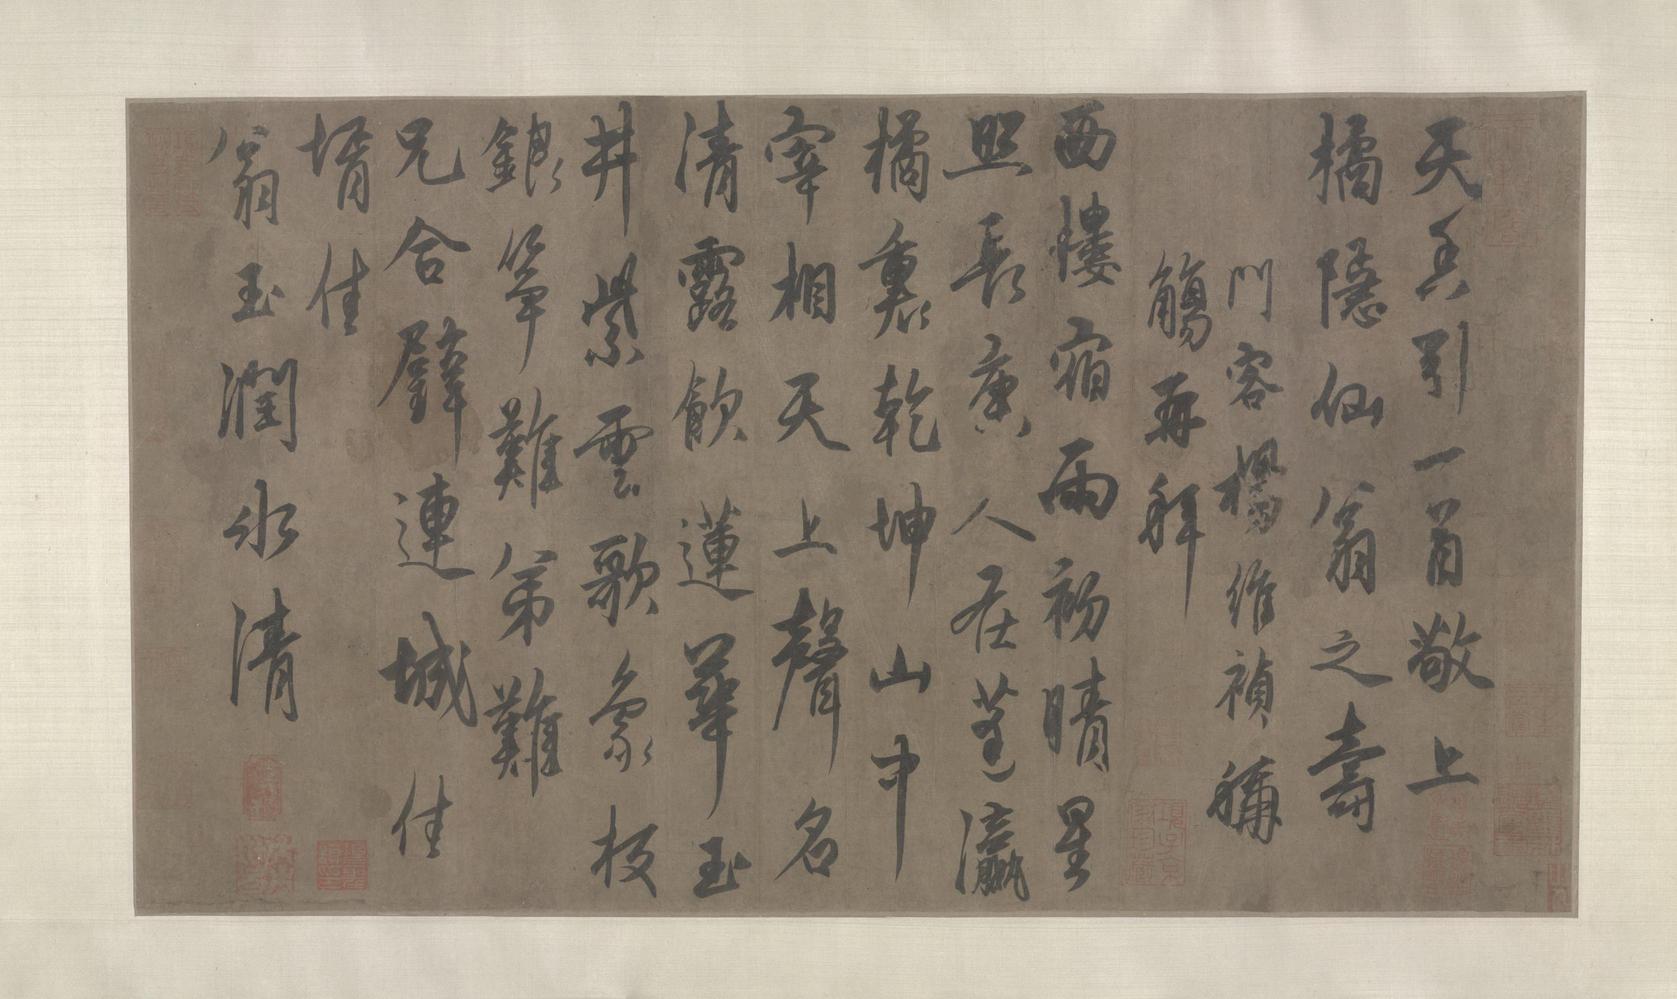 天香引一首敬上
橘隱仙翁之壽
門客楊維禎稱
觴再拜
西樓宿雨初晴星
照長庚人在蓬瀛
橘裏乾坤山中
宰相天上聲名
清露飲蓮華玉
井紫雲歌象板
銀箏難弟難
兄合璧連城佳
壻佳
翁玉潤氷清